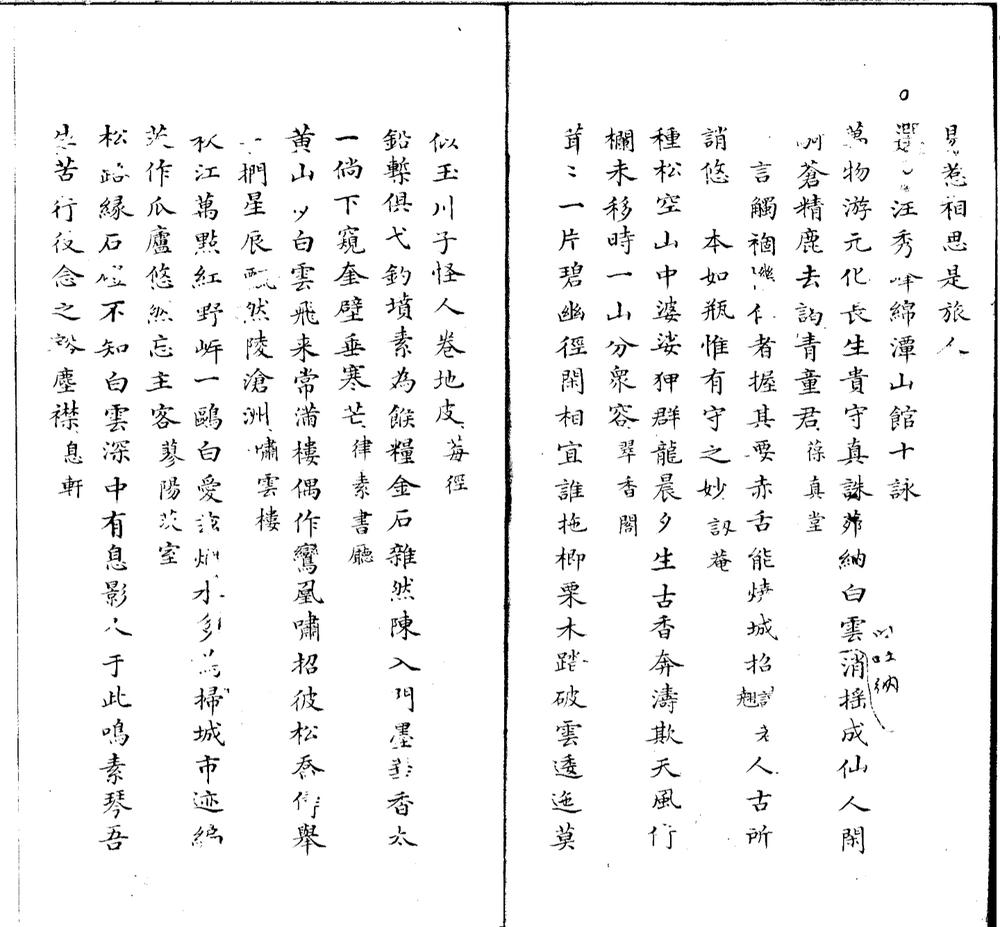 易惹相思是旅人
選汪秀峰綿潭山館十詠
萬物游元化長生貴守真誅茆納白雲消搖成仙人閑
吐納
蒼精鹿去詢青童君葆真堂
言觸禍機仁者握其要赤舌能燒城招尤人古所
誚悠 本如瓶惟有守之妙訒菴
種松空山中婆娑狎群龍晨夕生古香奔濤欺天風竹
欄未移時一山分衆容翠香閣
茸〻一片碧幽徑閑相宜誰拖楖栗木踏破雲逶迤莫
似玉川子怪人卷地皮莓徑
鉛槧俱弋釣墳素為餱糧金石雜然陳入門墨香太
一倘下窺奎壁垂寒芒律素書廳
黄山白雲飛来常滿樓偶作鸞凰嘯招彼松喬儔舉
捫星辰飄然陵滄洲嘯雲樓
秋江萬點紅野岸一鷗白愛水多為掃城市迹編
茨作瓜廬悠然忘主客蓼陽茨室
松路緣石磴不知白雲深中有息影人于此鳴素琴吾
生苦行役念之豁塵襟息軒